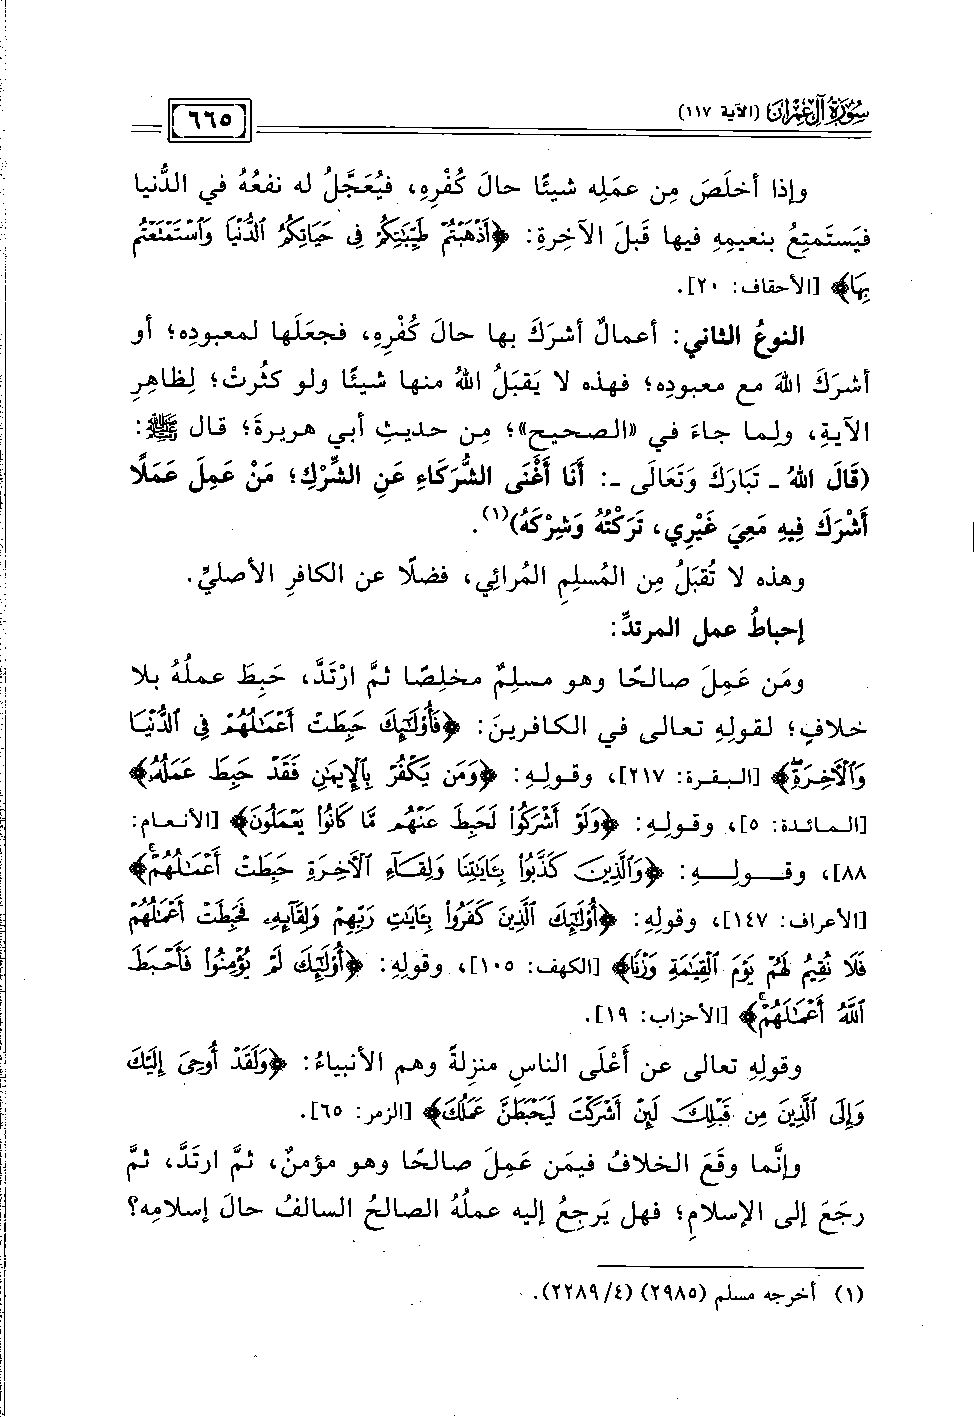 سُورَةُ آلِ عِمْرَانَ (الآية ١١٧)
٦٦٥
وإذا أخلَصَ مِن عمَلِه شيئًا حالَ كُفْرِهِ، فيُعَجَّلُ له نفعُهُ في الدُّنيا
فيَستمتِعُ بنعيمِهِ فيها قَبلَ الآخِرةِ: ﴿أَذْهَبْتُمْ طَيِّبَٰتِكُمْ فِى حَيَاتِكُمُ ٱلدُّنْيَا وَٱسْتَمْتَعْتُم
بِهَا﴾ [الأحقاف: ٢٠].
النوعُ الثاني: أعمالٌ أشرَكَ بها حالَ كُفْرِهِ، فجعَلَها لمعبودِه؛ أو
أشرَكَ اللهَ مع معبودِه؛ فهذه لا يَقبَلُ اللهُ منها شيئًا ولو كثُرتْ؛ لِظاهِرِ
الآيةِ، ولِما جاءَ في «الصحيح»؛ مِن حديثِ أبي هريرةَ؛ قال ﷺ:
(قَالَ اللهُ ـ تَبَارَكَ وَتَعَالَى ـ: أَنَا أَغْنَى الشُّرَكَاءِ عَنِ الشِّرْكِ؛ مَنْ عَمِلَ عَمَلًا
أَشْرَكَ فِيهِ مَعِيَ غَيْرِي، تَرَكْتُهُ وَشِرْكَهُ)(١).
وهذه لا تُقبَلُ مِن المُسلِمِ المُرائِي، فضلًا عن الكافرِ الأصليِّ.
إحباطُ عمل المرتدِّ:
ومَن عَمِلَ صالحًا وهو مسلِمٌ مخلِصًا ثمَّ ارْتَدَّ، حَبِطَ عملُهُ بلا
خلافٍ؛ لقولِهِ تعالى في الكافرينَ: ﴿فَأُو۟لَٰٓئِكَ حَبِطَتْ أَعْمَٰلُهُمْ فِى ٱلدُّنْيَا
وَٱلْأَخِرَةِ﴾ [البقرة: ٢١٧]، وقولِهِ: ﴿وَمَن يَكْفُرْ بِٱلْإِيمَٰنِ فَقَدْ حَبِطَ عَمَلُهُۥ﴾
[المائدة: ٥]، وقولِهِ: ﴿وَلَوْ أَشْرَكُوا۟ لَحَبِطَ عَنْهُم مَّا كَانُوا۟ يَعْمَلُونَ﴾ [الأنعام:
٨٨]، وقـولـهِ: ﴿وَٱلَّذِينَ كَذَّبُوا۟ بِـَٔايَٰتِنَا وَلِقَآءِ ٱلْأَخِرَةِ حَبِطَتْ أَعْمَٰلُهُمْ﴾
[الأعراف: ١٤٧]، وقولِهِ: ﴿أُو۟لَٰٓئِكَ ٱلَّذِينَ كَفَرُوا۟ بِـَٔايَٰتِ رَبِّهِمْ وَلِقَآئِهِۦ فَحَبِطَتْ أَعْمَٰلُهُمْ
فَلَا نُقِيمُ لَهُمْ يَوْمَ ٱلْقِيَٰمَةِ وَزْنًا﴾ [الكهف: ١٠٥]، وقولِهِ: ﴿أُو۟لَٰٓئِكَ لَمْ يُؤْمِنُوا۟ فَأَحْبَطَ
ٱللَّهُ أَعْمَٰلَهُمْ﴾ [الأحزاب: ١٩].
وقولِهِ تعالى عن أَعْلَى الناسِ منزِلةً وهم الأنبياءُ: ﴿وَلَقَدْ أُوحِىَ إِلَيْكَ
وَإِلَى ٱلَّذِينَ مِن قَبْلِكَ لَئِنْ أَشْرَكْتَ لَيَحْبَطَنَّ عَمَلُكَ﴾ [الزمر: ٦٥].
وإنَّما وقَعَ الخلافُ فيمَن عَمِلَ صالحًا وهو مؤمنٌ، ثمَّ ارتَدَّ، ثمَّ
رجَعَ إلى الإسلامِ؛ فهل يَرجِعُ إليه عملُهُ الصالحُ السالفُ حالَ إسلامِه؟
(١) أخرجه مسلم (٢٩٨٥) (٢٢٨٩/٤).